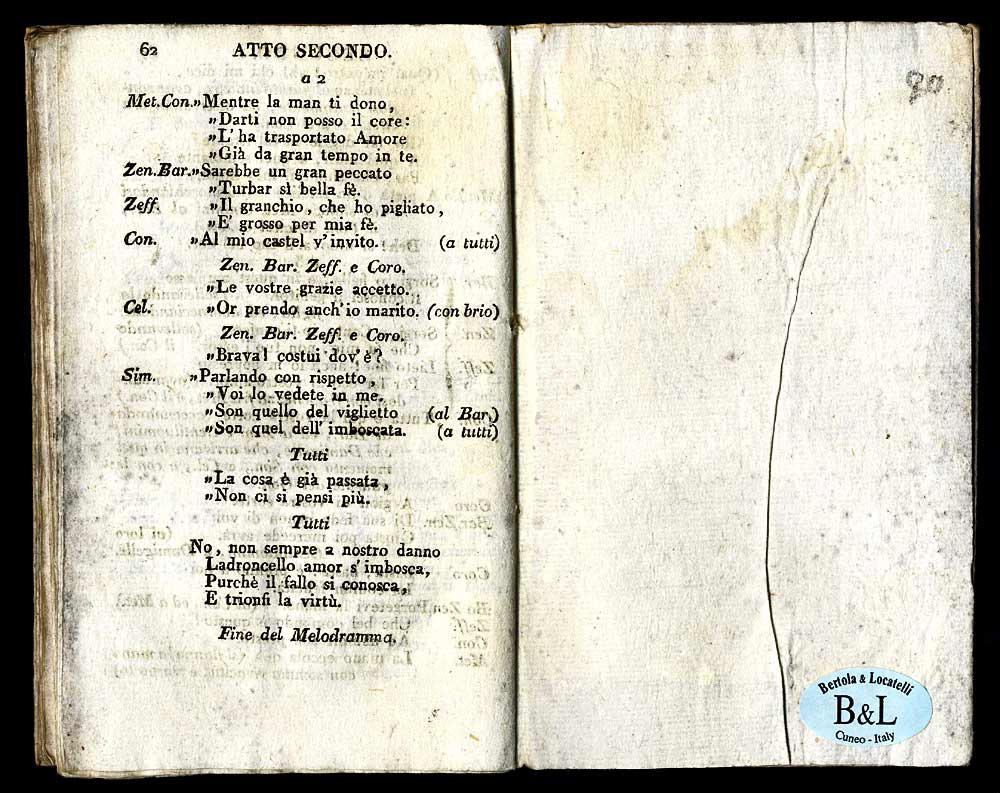 62 ATTO SECONDO.
a 2
Met.Con. „Mentre la man ti dono,
„Darti non posso il core:
„L' ha trasportato Amore
„Già da gran tempo in te.
Zen.Bar. „Sarebbe un gran peccato
„Turbar sì bella fè.
Zeff. „Il granchio, che ho pigliato,
„E' grosso per mia fè.
Con. „Al mio castel v' invito. (a tutti)
Zen. Bar. Zeff. e Coro.
„Le vostre grazie accetto.
Cel. „Or prendo anch' io marito. (con brio)
Zen. Bar. Zeff. e Coro.
„Brava! costui dov' è?
Sim. „Parlando con rispetto,
„Voi lo vedete in me.
„Son quello del viglietto (al Bar.)
„Son quel dell' imboscata. (a tutti)
Tutti
„La cosa è già passata,
„Non ci si pensi più.
Tutti
No, non sempre a nostro danno
Ladroncello amor s' imbosca,
Purchè il fallo si conosca,
E trionfi la virtù.
Fine del Melodramma.
90
Bertola & Locatelli
B&L
Cuneo - Italy